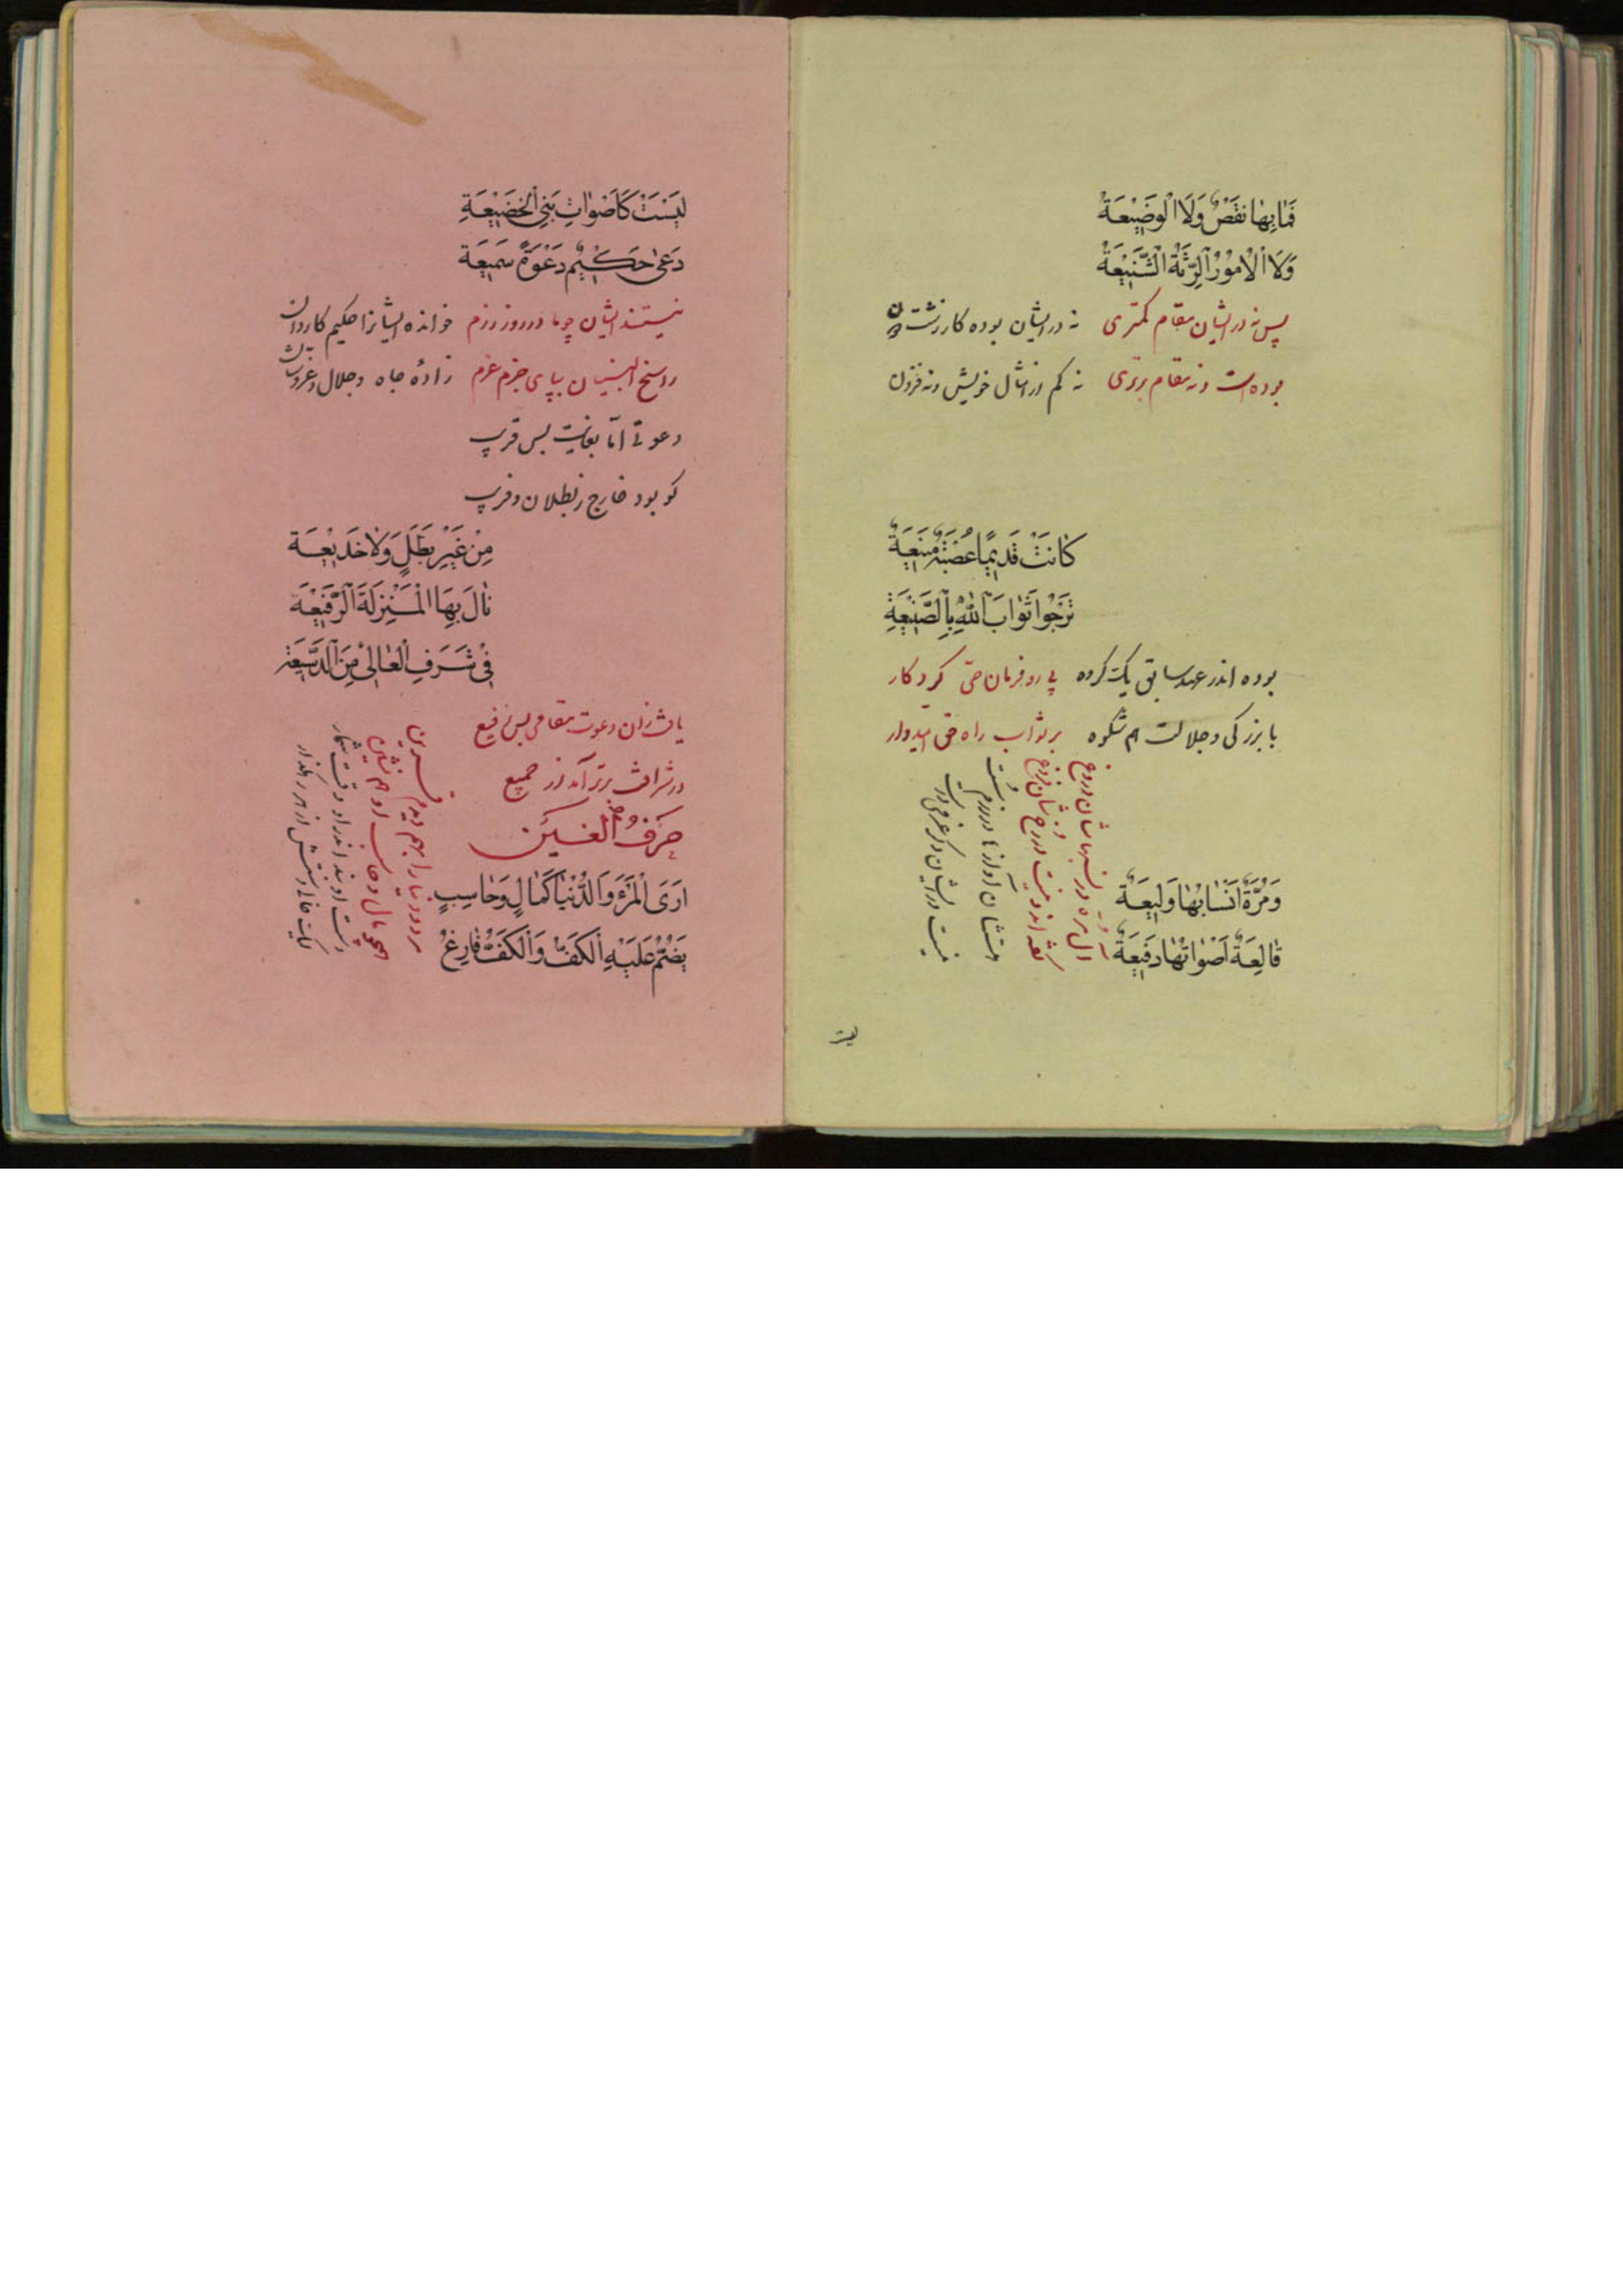 فَمَا بِهَا نَقْصٌ وَلَا الْوَضِيعَةُ
وَلَا الْأُمُورُ الرَّثَّةُ الشَّنِيعَةُ
پس نه در ایشان مقام کمتری نه در ایشان بوده کار زشت
بوده است ونه مقام برتری نه کم از امثال خویش ونه فزون
كَانَتْ قَدِيمًا عُصْبَةٌ مَنِيعَةٌ
تَرْجُوا ثَوَابَ اللّٰهِ بِالصَّنِيعَةِ
بوده اندر عهد سابق یک گروه پی رو فرمان حق کردکار
با بزرگی وجلالت هم شکوه بر ثواب راه حق امیدوار
وَمُرَّةٌ أَنْسَابُهَا وَلِيعَةٌ
قَالِعَةٌ أَصْوَاتُهَا رَفِيعَةٌ
آل مره در نسبهاشان دروغ
هستشان آواز
نیست در ایشان
لیست
لَيْسَتْ كَأَصْوَاتِ بَنِي الْخَضِيعَةِ
دَعَى حَكِيمٌ دَعْوَةً سَمِيعَةً
نیستند ایشان چو ما در روز رزم خوانده ایشانرا حکیم کاردان
راسخ البنیان بپای حزم عزم زاده جاه وجلال
دعوتی اما بغایت بس قریب
کو بود خارج ز بطلان وفریب
مِنْ غَيْرِ بَطَلٍ وَلَا خَدِيعَةٍ
نَالَ بِهَا الْمَنْزِلَةَ الرَّفِيعَةَ
فِي شَرَفِ الْعَالِي مِنَ الدَّسِيعَةِ
یافت زان دعوت مقامی بس رفیع
در شرافت برتر آمد از جمیع
حَرْفُ الْغَيْن
أَرَى الْمَرْءَ وَالدُّنْيَا كَمَالٍ وَحَاسِبٍ
يَضُمُّ عَلَيْهِ الْكَفَّ وَالْكَفُّ فَارِغٌ
مرد ودنیا را بهم دیدم قرین
همچو مال وحاسب او هم نشین
دست او بند اندر او وقت شمار
لیک خالی دستش از هر رهگذار